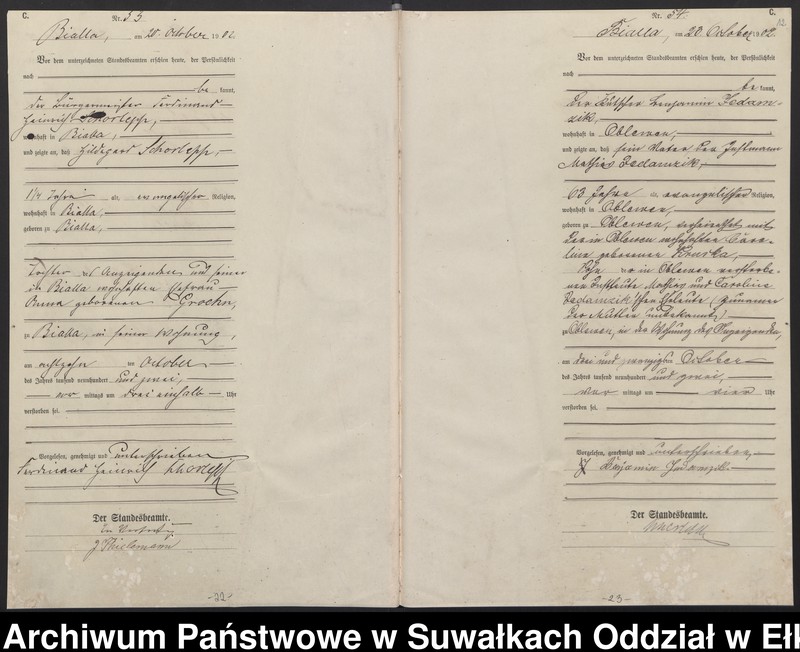 C.
Nr. 53.
Bialla, am 20. October 1902.
Vor dem unterzeichneten Standesbeamten erschien heute, der Persönlichkeit
nach
be kannt,
der Bürgermeister Ferdinand
Heinrich Schorlepp,
wohnhaft in Bialla,
und zeigte an, daß Hildegard Schorlepp,
1 1/4 Jahre alt, evangelischer Religion,
wohnhaft in Bialla,
geboren zu Bialla,
Tochter des Anzeigenden und seiner
in Bialla wohnhaften Ehefrau
Anna geborenen Grochn,
zu Bialla, in seiner Wohnung,
am achtzehn ten October
des Jahres tausend neunhundert und zwei,
vor mittags um drei einhalb Uhr
verstorben sei.
Vorgelesen, genehmigt und unterschrieben
Ferdinand Heinrich Schorlepp
Der Standesbeamte.
In Vertretung
J. Thielemann
-22-
C.
Nr. 54.
Bialla, am 23. October 1902.
Vor dem unterzeichneten Standesbeamten erschien heute, der Persönlichkeit
nach
be kannt,
der Kutscher Benjamin Jedam-
zik,
wohnhaft in Oblewen,
und zeigte an, daß sein Vater der Instmann
Mathies Jedamzik,
63 Jahre alt, evangelischer Religion,
wohnhaft in Oblewen,
geboren zu Oblewen, verheirathet mit
der in Oblewen wohnhaften Caro-
line geborener
Sohn der in Oblewen verstorbe-
nen Instleute Mathies und Caroline
Jedamzik'schen Eheleute (Zunamen
der Mutter unbekannt)
zu Oblewen, in der Wohnung des Anzeigenden,
am drei und zwanzigsten October
des Jahres tausend neunhundert und zwei,
vor mittags um vier Uhr
verstorben sei.
Vorgelesen, genehmigt und unterschrieben,
Benjamin Jedamzik
Der Standesbeamte.
-23-
Archiwum Państwowe w Suwałkach Oddział w Ełk